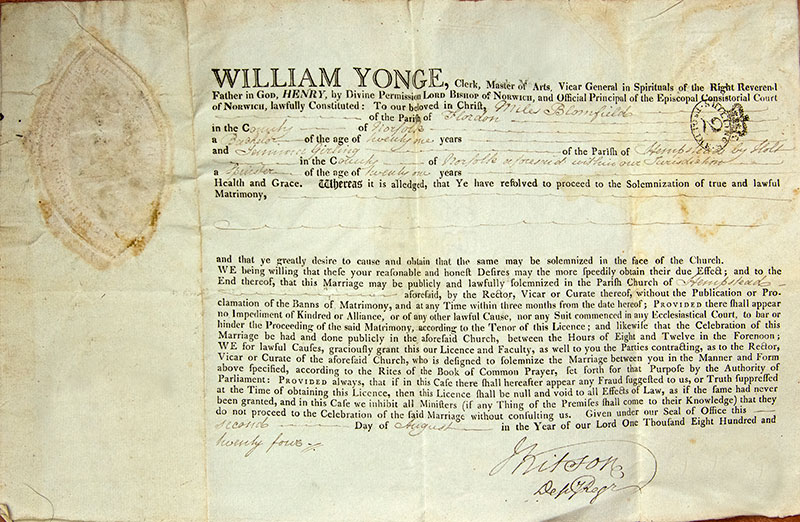 WILLIAM YONGE, Clerk, Master of Arts, Vicar General in Spirituals of the Right Reverend
Father in God, HENRY, by Divine Permission LORD BISHOP OF NORWICH, and Official Principal of the Episcopal Consistorial Court
of NORWICH, lawfully Constituted: To our beloved in Chriſt, Miles Blomfield
of the Pariſh of Flordon
in the County of Norfolk
a Bachelor of the age of twenty one years
and Girling of the Pariſh of Hempstead by Holt
in the County of Norfolk aforesaid within our Jurisdiction
a Spinster of the age of twenty one years
Health and Grace. Whereas it is alledged, that Ye have reſolved to proceed to the Solemnization of true and lawful
Matrimony,
and that ye greatly desire to cause and obtain that the same may be solemnized in the face of the Church.
WE being willing that theſe your reaſonable and honeſt Deſires may the more ſpeedily obtain their due Effect; and to the
End thereof, that this Marriage may be publicly and lawfully ſolemnized in the Pariſh Church of Hempstead
aforeſaid, by the Rector, Vicar or Curate thereof, without the Publication or Pro-
clamation of the Banns of Matrimony, and at any Time within three months from the date hereof; PROVIDED there ſhall appear
no Impediment of Kindred or Alliance, or of any other lawful Cauſe, nor any Suit commenced in any Eccleſiaſtical Court, to bar or
hinder the Proceeding of the ſaid Matrimony, according to the Tenor of this Licence; and likewiſe that the Celebration of this
Marriage be had and done publicly in the aforeſaid Church, between the Hours of Eight and Twelve in the Forenoon;
WE for lawful Cauſes, graciouſly grant this our Licence and Faculty, as well to you the Parties contracting, as to the Rector,
Vicar or Curate of the aforeſaid Church, who is deſigned to ſolemnize the Marriage between you in the Manner and Form
above ſpecified, according to the Rites of the Book of Common Prayer, ſet forth for that Purpoſe by the Authority of
Parliament: PROVIDED always, that if in this Caſe there ſhall hereafter appear any Fraud ſuggeſted to us, or Truth ſuppreſſed
at the Time of obtaining this Licence, then this Licence ſhall be null and void to all Effects of Law, as if the ſame had never
been granted, and in this Caſe we inhibit all Miniſters (if any Thing of the Premiſes ſhall come to their Knowledge) that they
do not proceed to the Celebration of the ſaid Marriage without conſulting us. Given under our Seal of Office this
second Day of August in the Year of our Lord One Thouſand Eight Hundred and
twenty four
J Kitson
Depy Regr